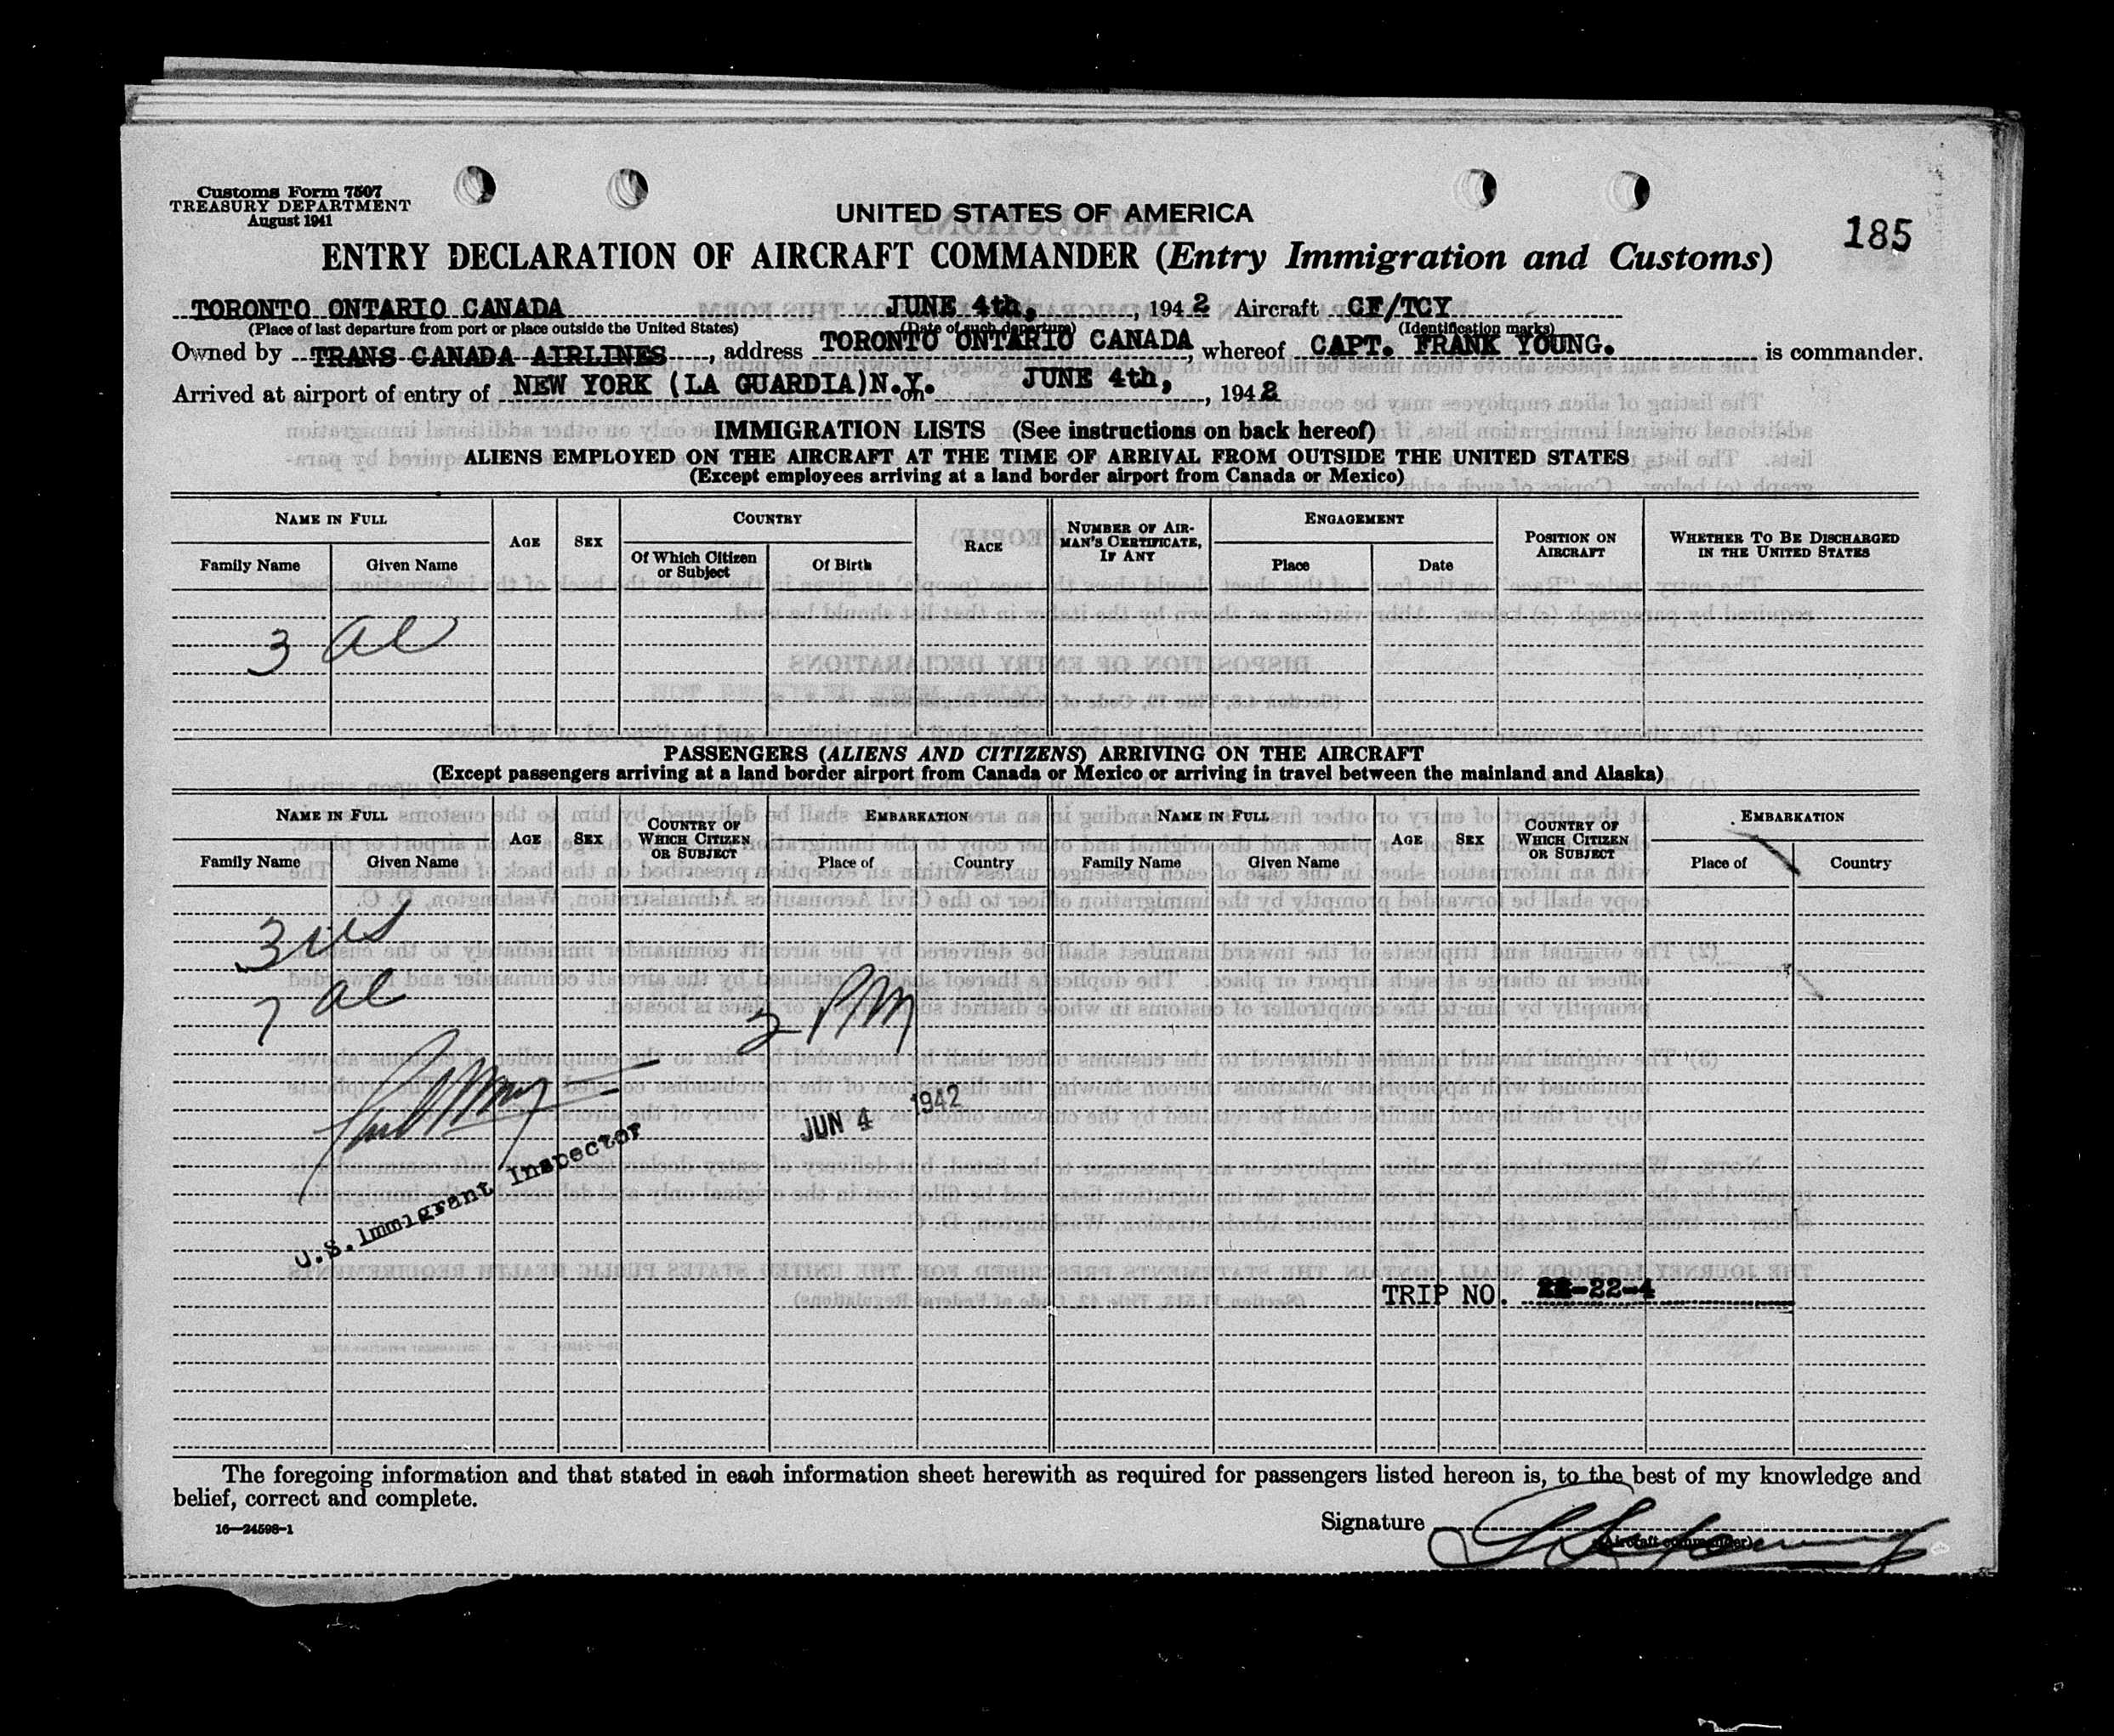 Customs Form 7507
TREASURY DEPARTMENT
August 1941
UNITED STATES OF AMERICA
185
ENTRY DECLARATION OF AIRCRAFT COMMANDER (Entry Immigration and Customs)
TORONTO ONTARIO CANADA JUNE 4th, , 1942 Aircraft CF/TCY
(Place of last departure from port or place outside the United States) (Date of such departure) (Identification marks)
Owned by TRANS CANADA AIRLINES , address TORONTO ONTARIO CANADA , whereof CAPT. FRANK YOUNG. is commander.
Arrived at airport of entry of NEW YORK (LA GUARDIA)N.Y. on JUNE 4th, , 1942
IMMIGRATION LISTS (See instructions on back hereof)
ALIENS EMPLOYED ON THE AIRCRAFT AT THE TIME OF ARRIVAL FROM OUTSIDE THE UNITED STATES
(Except employees arriving at a land border airport from Canada or Mexico)
NAME IN FULL AGE SEX COUNTRY RACE NUMBER OF AIRMAN'S CERTIFICATE, IF ANY ENGAGEMENT POSITION ON AIRCRAFT WHETHER TO BE DISCHARGED IN THE UNITED STATES
Family Name Given Name Of Which Citizen or Subject Of Birth Place Date
3 al
PASSENGERS (ALIENS AND CITIZENS) ARRIVING ON THE AIRCRAFT
(Except passengers arriving at a land border airport from Canada or Mexico or arriving in travel between the mainland and Alaska)
NAME IN FULL AGE SEX COUNTRY OF WHICH CITIZEN OR SUBJECT EMBARKATION NAME IN FULL AGE SEX COUNTRY OF WHICH CITIZEN OR SUBJECT EMBARKATION
Family Name Given Name Place of Country Family Name Given Name Place of Country
3 us
7 al
3 PM
JUN 4 1942
U.S. Immigrant Inspector
TRIP NO. 22-22-4
The foregoing information and that stated in each information sheet herewith as required for passengers listed hereon is, to the best of my knowledge and
belief, correct and complete.
16—24598-1
Signature
(Aircraft commander)